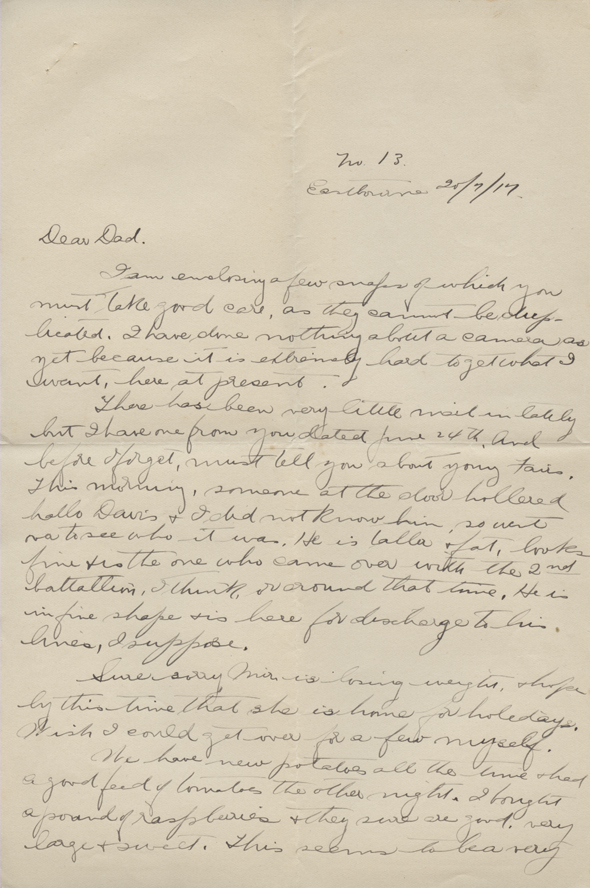 No. 13.
Eastbourne 20/7/17.
Dear Dad.
I am enclosing a few snaps of which you
must take good care, as they cannot be dup-
licated. I have done nothing about a camera as
yet because it is extremely hard to get what I
want, here at present.
There has been very little mail in lately
but I have one from you dated June 24th. And
before I forget, must tell you about young Faris.
This morning, someone at the door hollered
hallo Davis & I did not know him, so went
to see who it was. He is tall & fat, looks
fine & is the one who came over with the 2nd
battallion, I think, or around that time. He is
in fine shape & is here for discharge to his
lines, I suppose.
Sure sorry is losing weight, & hope
by this time that she is home for holidays.
Wish I could get over for a few myself.
We have new potatoes all the time & had
a good feed of tomatoes the other night. I bought
a pound of raspberries & they sure are good, very
large & sweet. This seems to be a very